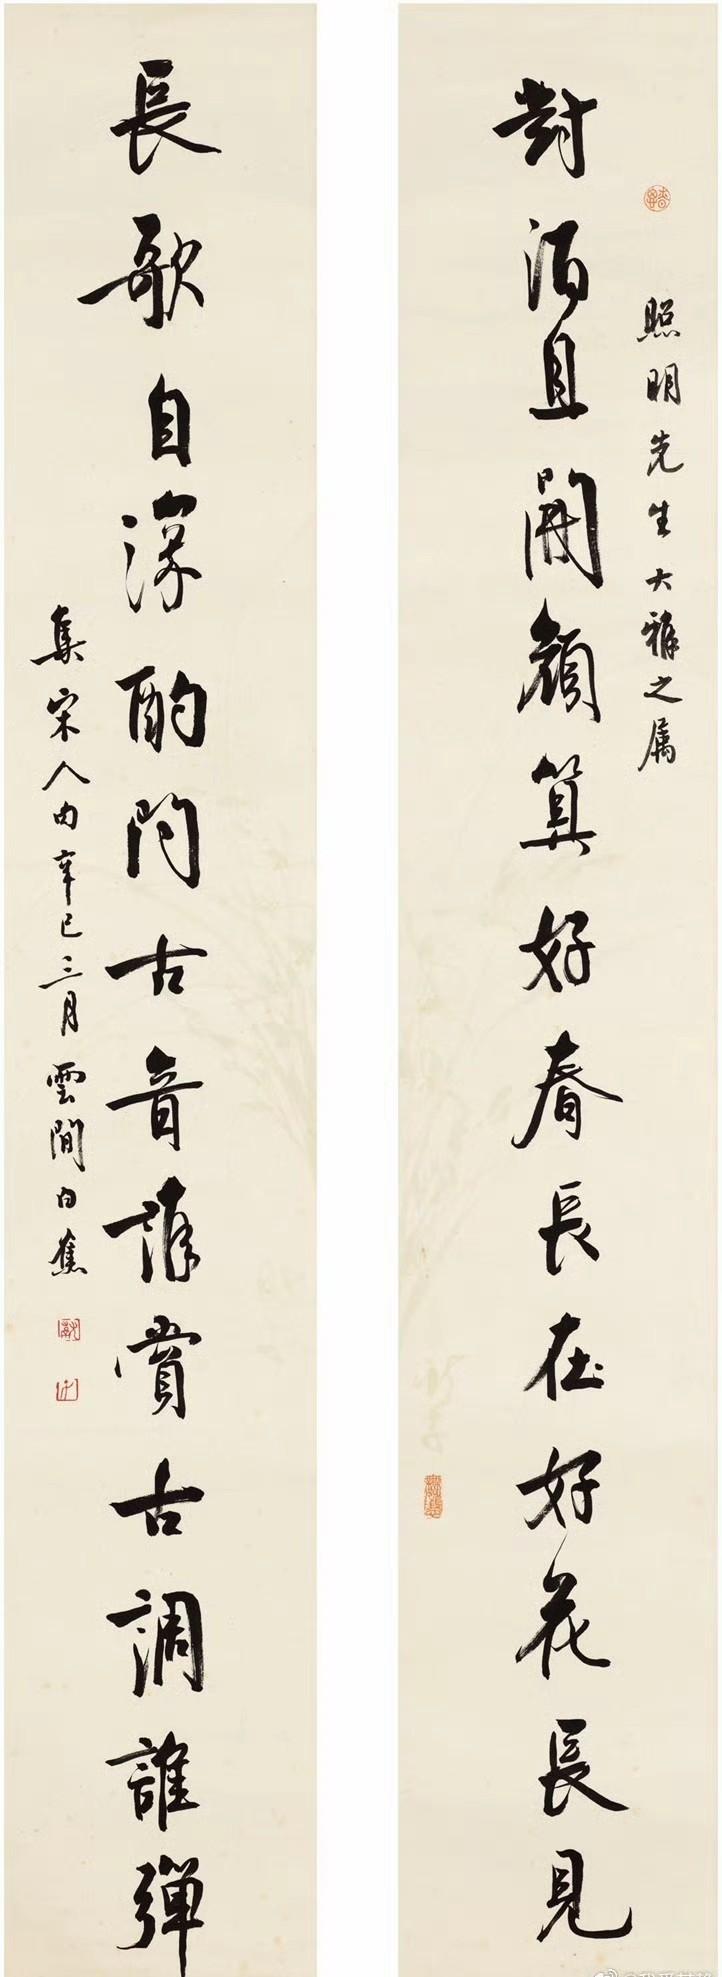 照明先生大雅之属
對酒且開顏算好春長在好花長見
長歌自深酌問古音誰賞古調誰彈
集宋人句辛巳三月雲間白蕉